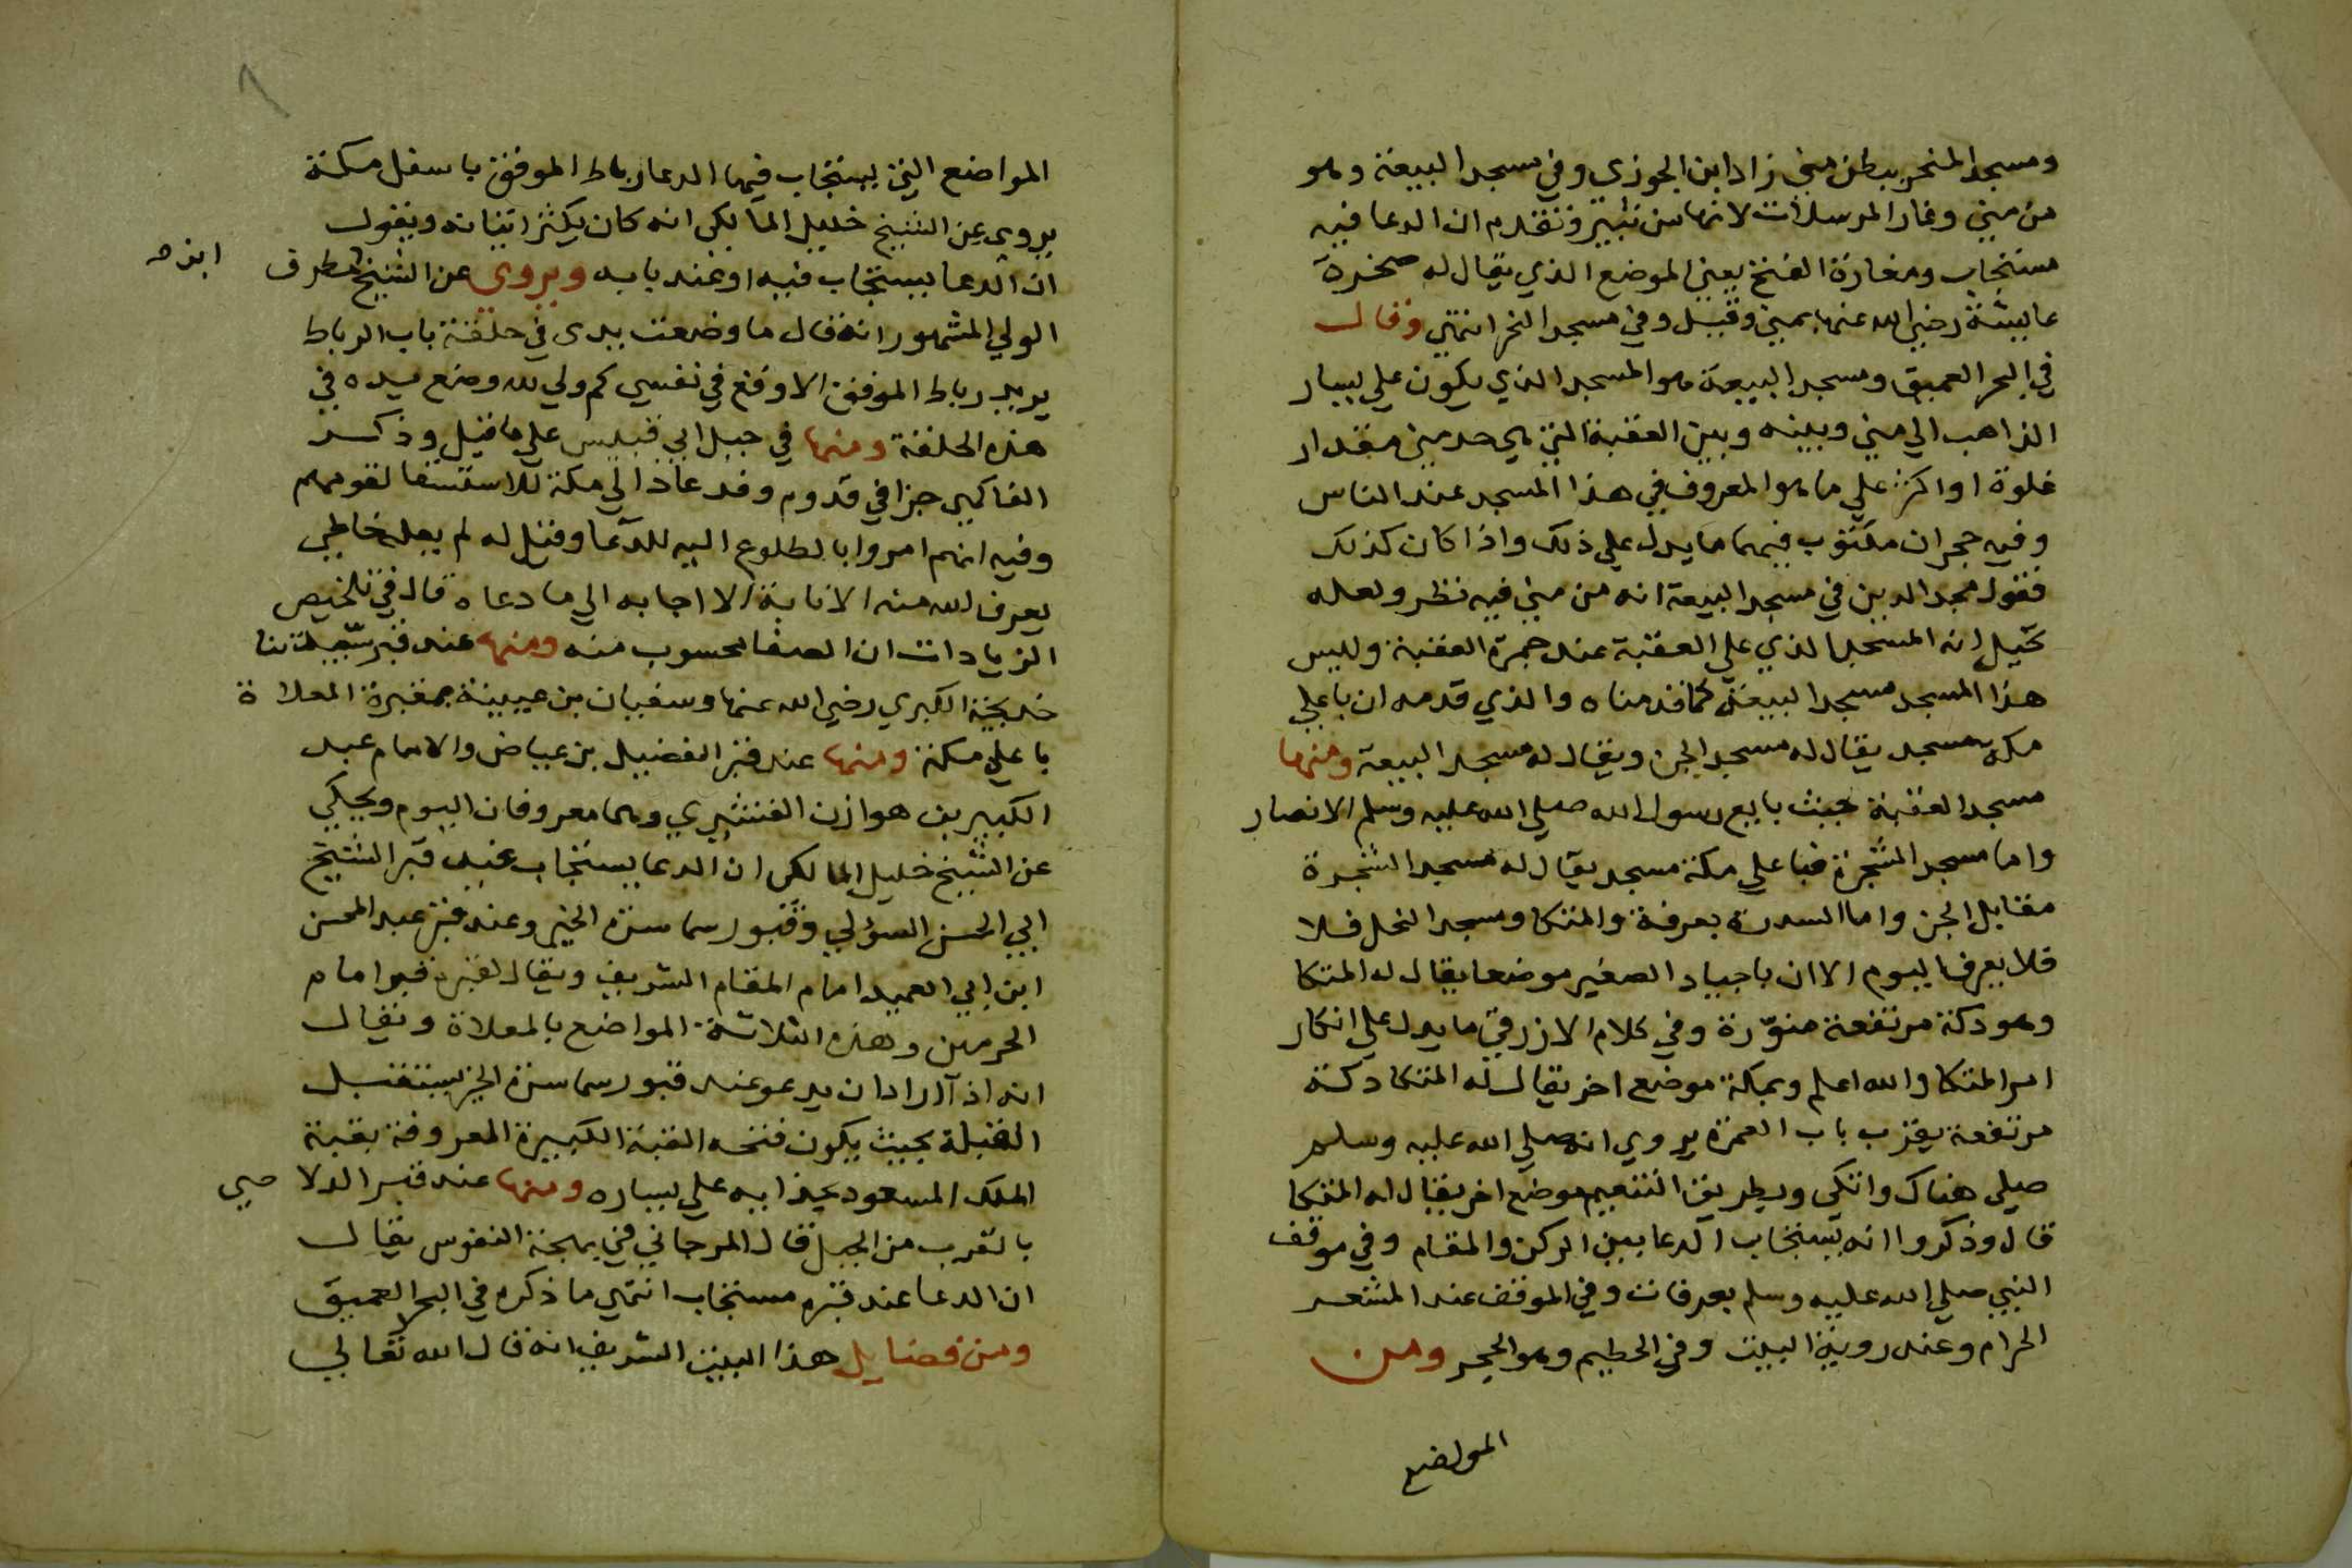 ومسجد المنحر ببطن منى زاد ابن الجوزى وفي مسجد البيعة وهو
من منى وغار المرسلات لانها من ثبير وتقدم ان الدعا فيه
مستجاب ومغارة الفتح يعنى الموضع الذي يقال له صخرة
عايشة رضي الله عنها بمنى وقيل وفي مسجد النحر انتهي وقال
في البحر العميق ومسجد البيعة هو المسجد الذي يكون علي يسار
الذاهب الي منى وبينه وبين العقبة التي هي حد منى مقدار
غلوة او اكثر علي ما هو المعروف في هذا المسجد عند الناس
وفيه حجران مكتوب فيهما ما يدل علي ذلك واذا كان كذلك
فقول مجد الدين في مسجد البيعة انه من منى فيه نظر ولعله
تخيل انه المسجد الذي علي العقبة عند جمرة العقبة وليس
هذا المسجد مسجد البيعة كما قدمناه والذي قدمه ان باعلي
مكة مسجد يقال له مسجد الجن ويقال له مسجد البيعة ومنها
مسجد العقبة حيث بايع رسول الله صلي الله عليه وسلم الانصار
واما مسجد الشجرة فباعلي مكة مسجد يقال له مسجد الشجرة
مقابل الجن واما السدرة بعرفة والمتكا ومسجد النحل فلا
فلا يعرف اليوم الا ان باجياد الصغير موضعا يقال له المتكا
وهو دكة مرتفعة منوّرة وفي كلام الازرقي ما يدل علي انكار
امر المتكا والله اعلم وبمكة موضع اخر يقال له المتكا دكة
مرتفعة بقرب باب العمرة يروي انه صلي الله عليه وسلم
صلي هناك واتكى وبطريق التنعيم موضع اخر يقال له المتكا
قال وذكروا انه يستجاب الدعا بين الركن والمقام وفي موقف
النبي صلي الله عليه وسلم بعرفات وفي الموقف عند المشعر
الحرام وعند روية البيت وفي الحطيم وهو الحجر ومن
المواضع
المواضع التي يستجاب فيها الدعا رباط الموفق باسفل مكة
يروى عن الشيخ خليل المالكي انه كان يكثر اتيانه ويقول
ان الدعا يستجاب فيه او عند بابه ويروى عن الشيخ مطرف
الولي المشهور انه قال ما وضعت يدى في حلقة باب الرباط
يريد رباط الموفق الا وقع في نفسي كم ولي لله وضع يده في
هذه الحلقة ومنها في جبل ابي قبيس علي ما قيل وذكر
الفاكهي خبرا في قدوم وفد عاد الي مكة للاستسقا لقومهم
وفيه انهم امروا بالطلوع اليه للدعا وقيل له لم يعله خاطي
يعرف الله منه الانابة الا اجابه الي ما دعاه قال في تلخيص
الزيادات ان الصفا محسوب منه ومنها عند قبر سيدتنا
خديجة الكبري رضي الله عنها وسفيان بن عيينة بمقبرة المعلاة
باعلي مكة ومنها عند قبر الفضيل بن عياض والامام عبد
الكبير بن هوازن القشيري وهما معروفان اليوم ويحكي
عن الشيخ خليل المالكي ان الدعا يستجاب عند قبر الشيخ
ابي الحسن الشولي وقبور سماسرة الخير وعند قبر عبد المحسن
ابن ابي العميد امام المقام الشريف ويقال لقبره قبر امام
الحرمين وهذه الثلاثة المواضع بالمعلاة ويقال
انه اذا اراد ان يدعو عند قبور سماسرة الخير يستقبل
القبلة بحيث يكون فتحه القبة الكبيرة المعروفة بقبة
الملك المسعود بحذايه علي يساره ومنها عند قبر الدلاصي
بالقرب من الجبل قال المرجاني في بهجة النفوس يقال
ان الدعا عند قبره مستجاب انتهي ما ذكره في البحر العميق
ومن فضايل هذا البيت الشريف انه قال الله تعالي